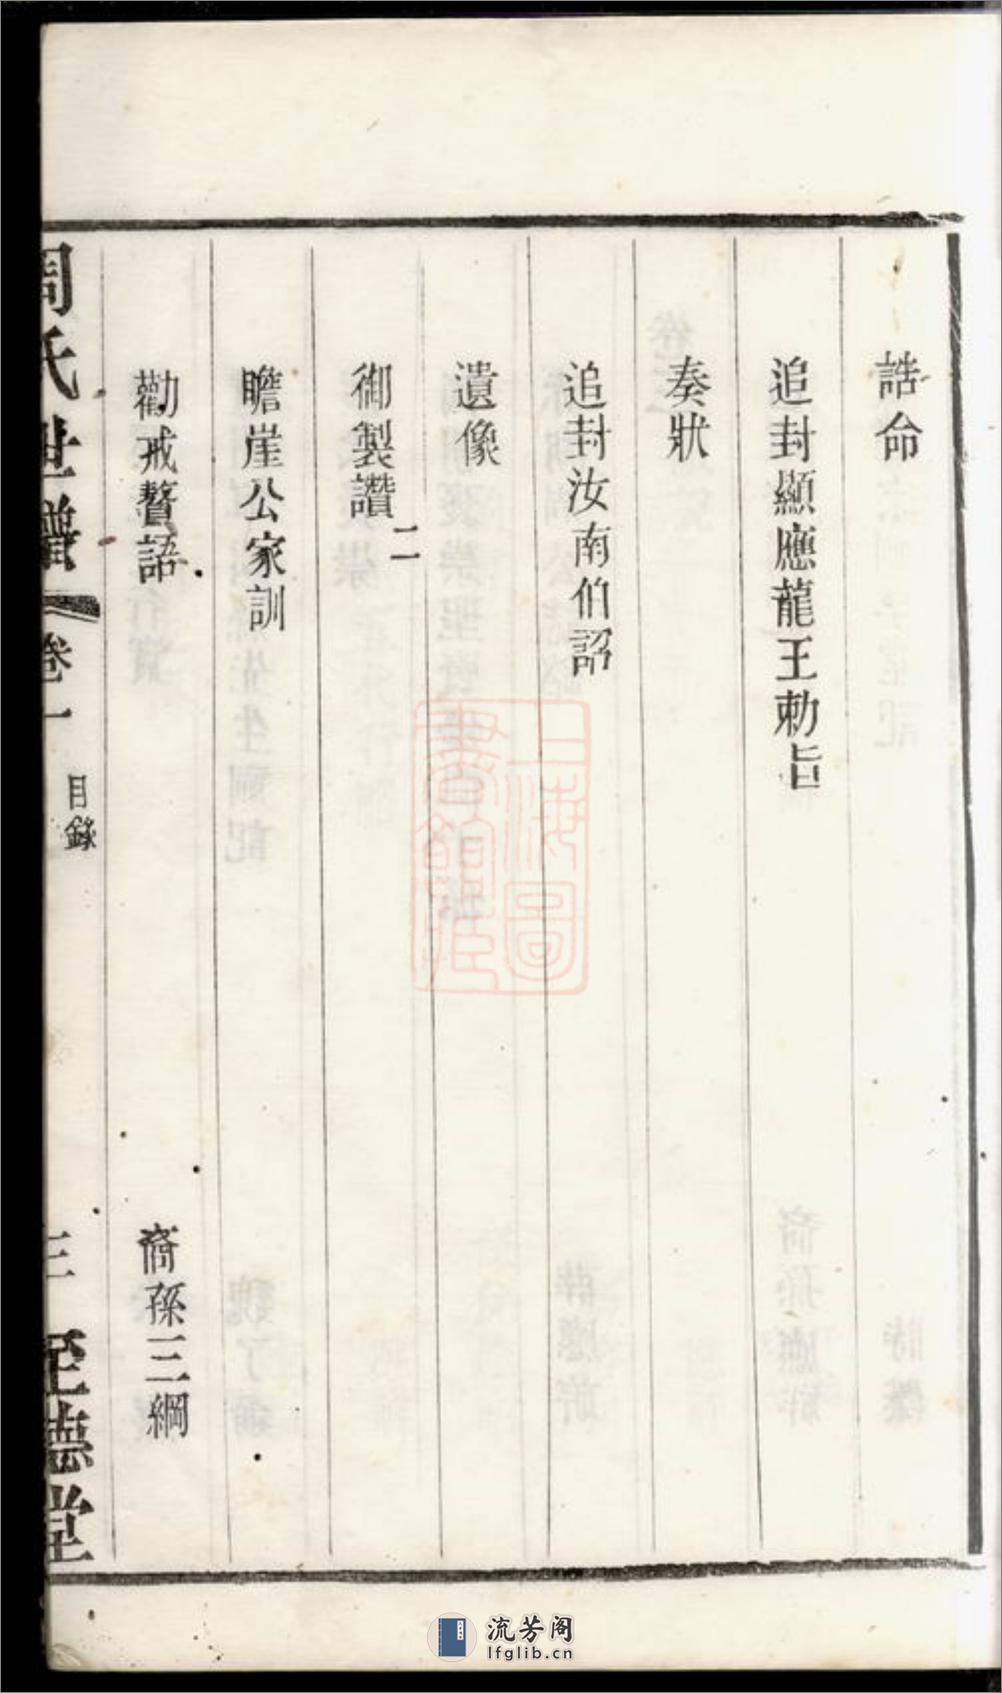 誥命
追封顯應龍王勅旨
奏狀
追封汝南伯詔
遺像
御製讚二
瞻崖公家訓
勸戒贅語 裔孫三綱
周氏世譜 卷一 目錄 三 至德堂
上海圖書館藏
流芳阁
lfglib.cn